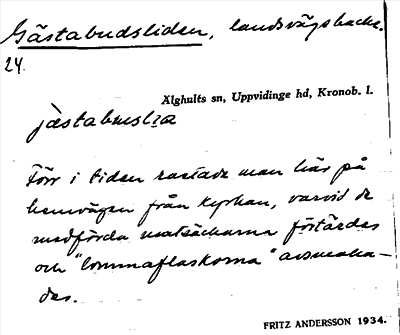 Gästabudsliden, landsvägsbacke.
24.
Älghults sn, Uppvidinge hd, Kronob. l.
Förr i tiden rastade man här på
hemvägen från kyrkan, varvid de
medförda matsäckarna förtärdes
och "lommaflaskorna" avsmaka-
des.
FRITZ ANDERSSON 1934.